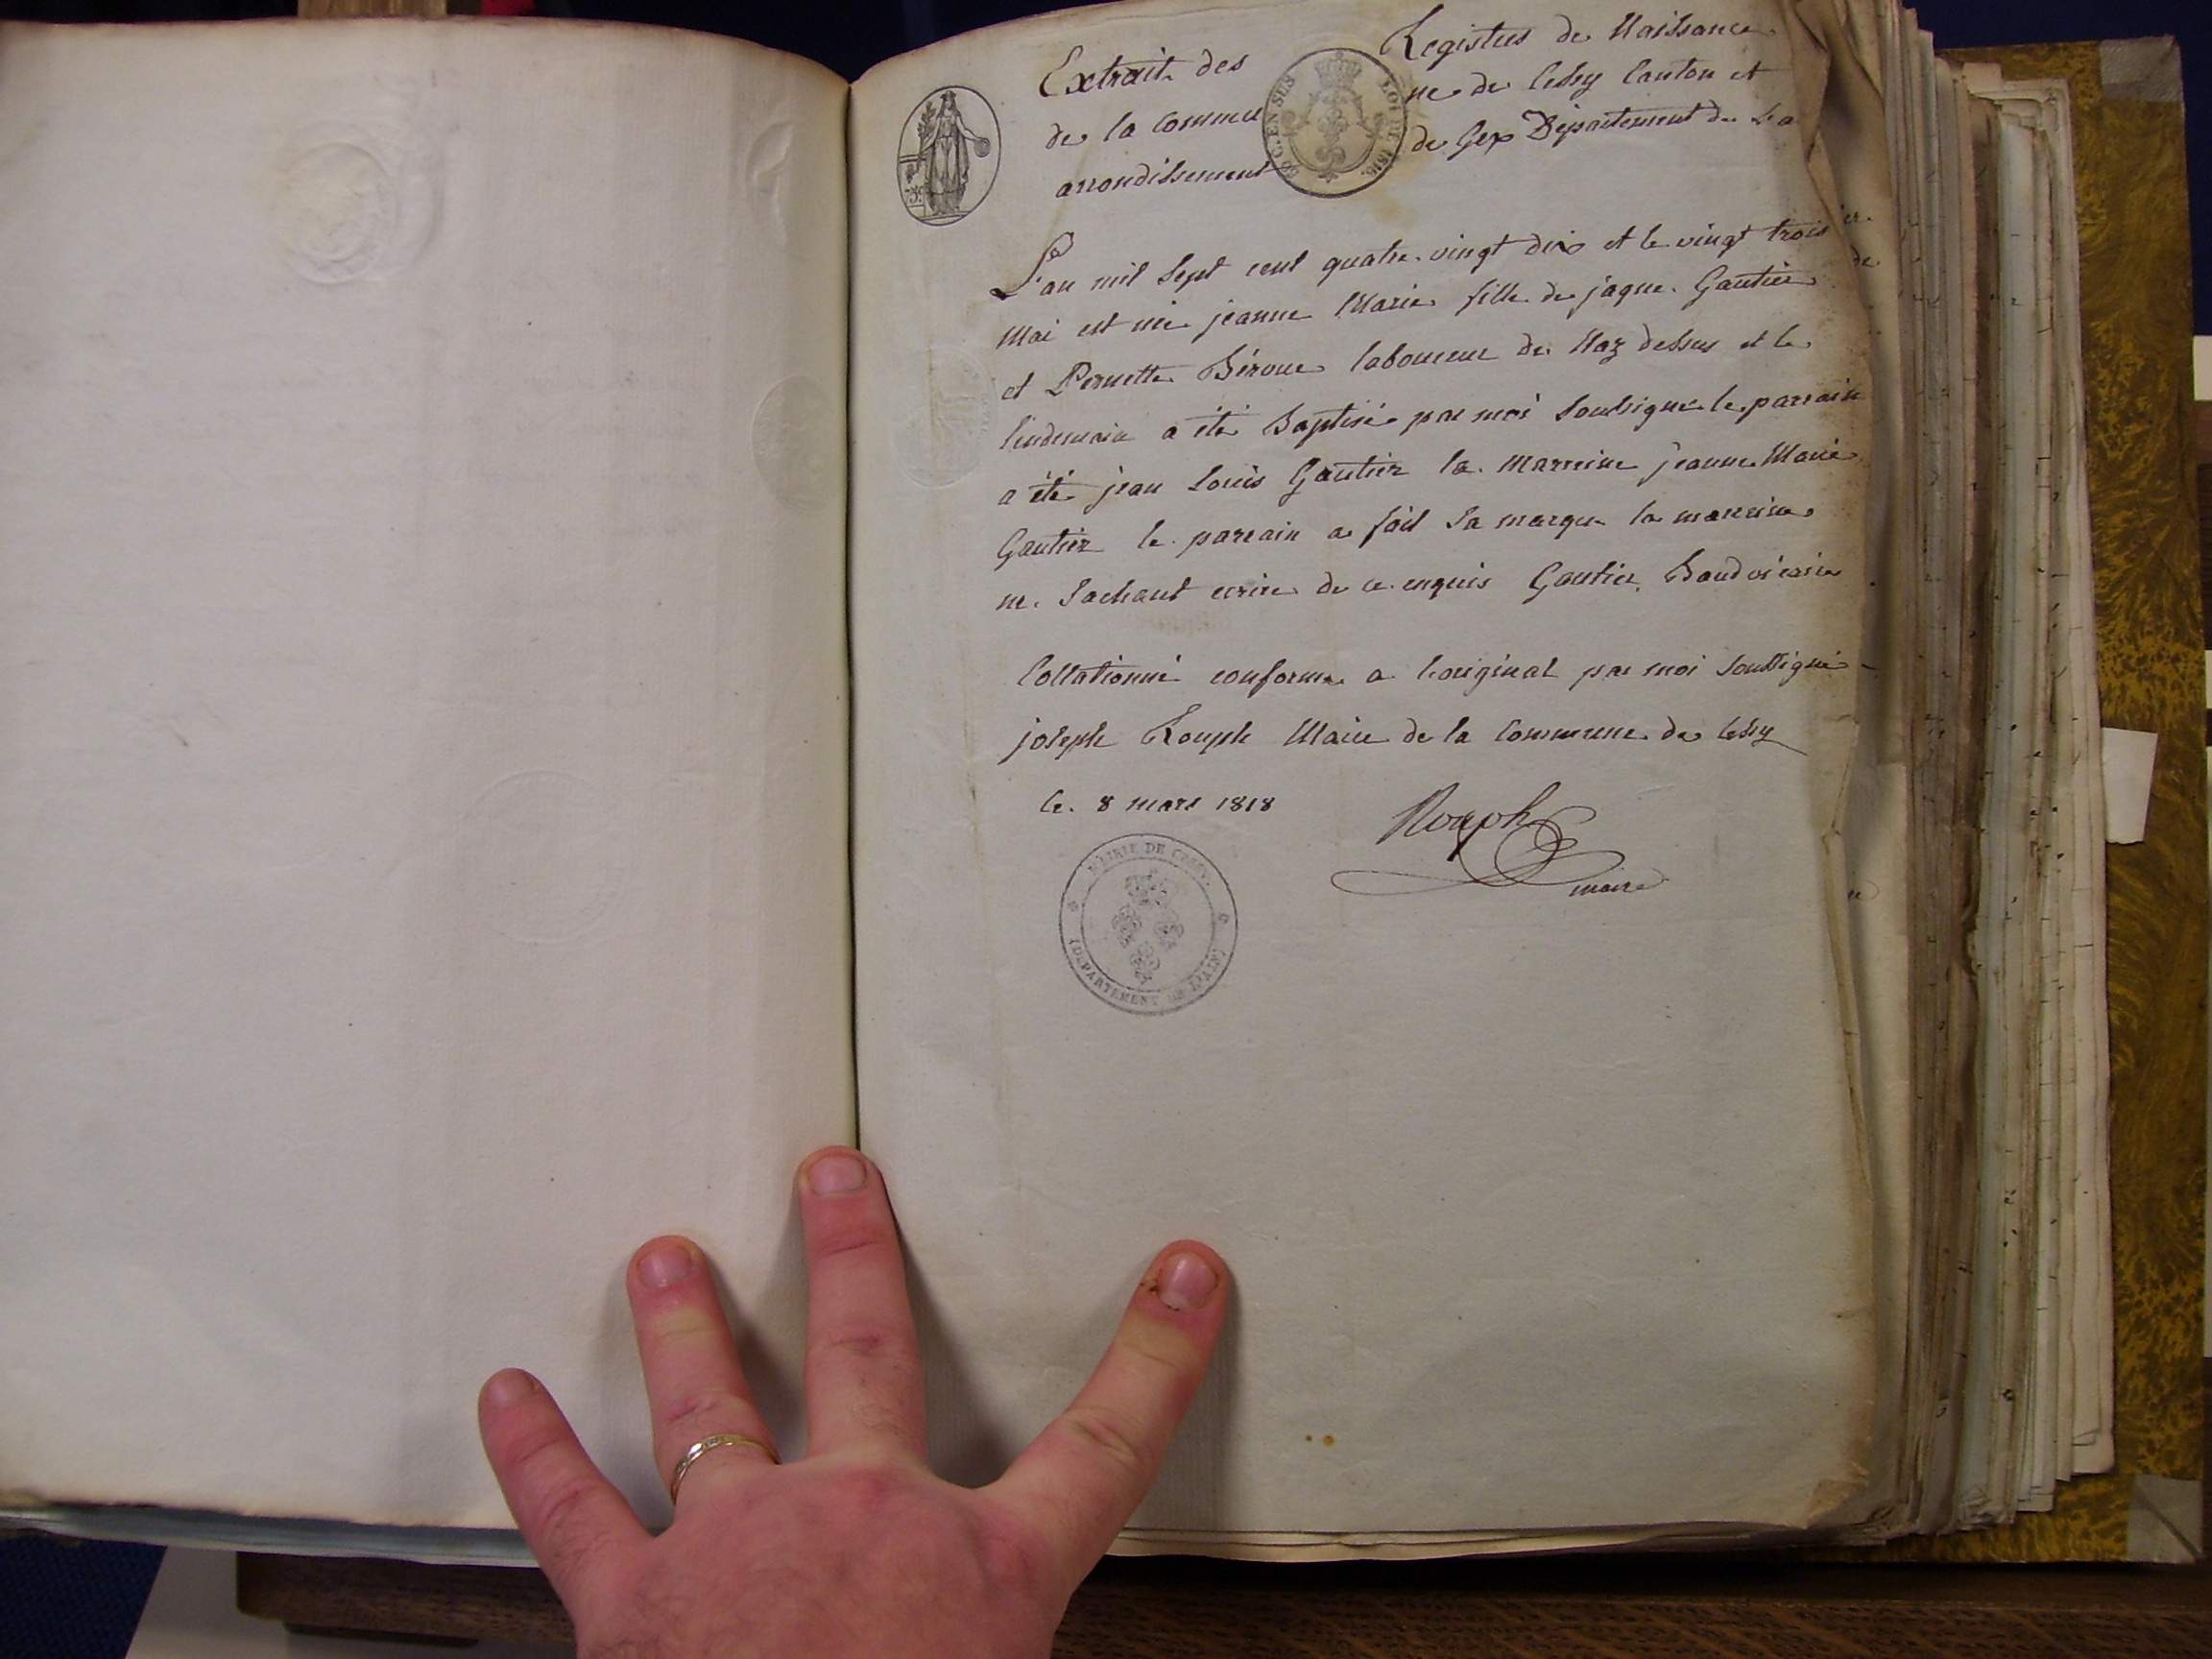 Extrait des Registres de Naissance
de la Commune de Cessy Canton et
arrondissement de Gex Département de La
35 C. EN SUS
LOI DE 1816.
L'an mil sept cent quatre-vingt dix et le vingt trois
Mai est née jeanne Marie fille de jaque Gautier de
et Pernette laboureur de Naz dessus et le
lendemain a été Baptisé par moi Soussigné le parrain
a été jean Louis Gautier la marreine jeanne Marie
Gautier le parrain a fait sa marque la marreine
ne Sachant ecrire de ce enquis Gautier,
Collationné conforme a l'original par moi Soussigné
joseph Rouph Maire de la Commune de Cessy
le 8 mars 1818
Rouph
maire
MAIRIE DE CESSY.
(DEPARTEMENT DE L'AIN)